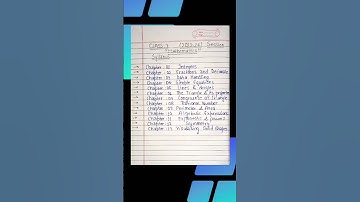 Class 7 (2025-26) Session
"Mathematics"
Syllabus
Chapter 01 Integers
Chapter 02 Fractions and Decimals
Chapter 03 Data Handling
Chapter 04 Simple Equations
Chapter 05 Lines & Angles
Chapter 06 The Triangle & its properties
Chapter 07 Congruence of Triangle
Chapter 08 Rational Number
Chapter 09 Perimeter & Area
Chapter 10 Algebraic Expression
Chapter 11 Exponents & powers
Chapter 12 Symmetry
Chapter 13 Visualising Solid Shapes